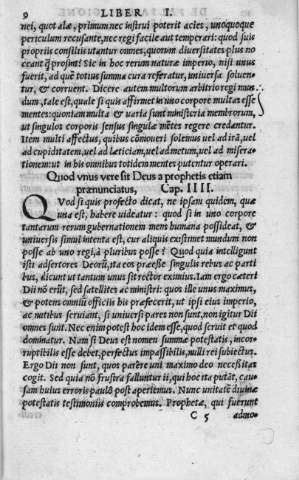 9 LIBER I.
nei, quot alæ, primum nec instrui poterit acies, unoquoque
periculum recusante, nec regi facile aut temperari: quod suis
propriis consiliis utantur omnes, quorum diversitates plus no
ceant q̃ prosint: Sic in hoc rerum naturæ imperio, nisi unus
fuerit, ad quē totius summa cura referatur, universa soluen
tur, & corruent. Dicere autem multorum arbitrio regi mun
dum, tale est, quale si quis affirmet in uno corpore multas esse
mentes: quoniam multa & varia sunt ministeria membrorum,
ut singulos corporis sensus singulæ mētes regere credantur.
Item multi affectus, quibus cōmoueri solemus vel ad irā, vel
ad cupiditatem, vel ad læticiam, vel ad metum, vel ad misera-
tionem: ut in his omnibus totidem mentes putentur operari.
Quod vnus vere sit Deus a prophetis etiam
prænunciatus, Cap. IIII.
QVod si quis profecto dicat, ne ipsam quidem, quæ
una est, habere uideatur: quod si in uno corpore
tantarum rerum gubernationem mens humana possidet, &
universis simul intenta est, cur aliquis existimet mundum non
posse ab uno regi, à pluribus posse? Quod quia intelligunt
isti adsertores Deorū, ita eos præesse singulis rebus ac parti
bus, dicunt ut tantum unus sit rector eximius. Iam ergo cæteri
Dii nō erūt, sed satellites ac ministri: quos ille unus maximus,
& potens omniū officiis his præfecerit, ut ipsi eius imperio,
ac nutibus seruiant, si universi pares non sunt, non igitur Dii
omnes sunt. Nec enim potest hoc idem esse, quod seruit et quod
dominatur. Nam si Deus est nomen summæ potestatis, incor-
ruptibilis esse debet, perfectus impassibilis, nulli rei subiectus.
Ergo Dii non sunt, quos parere uni maximo deo necessitas
cogit. Sed quia nō frustra falluntur ii, qui hoc ita putāt, cau-
sam huius erroris paulò post aperiemus. Nunc unitatē diuinæ
potestatis testimoniis comprobemus. Prophetæ, qui fuerunt
C 5 admo-